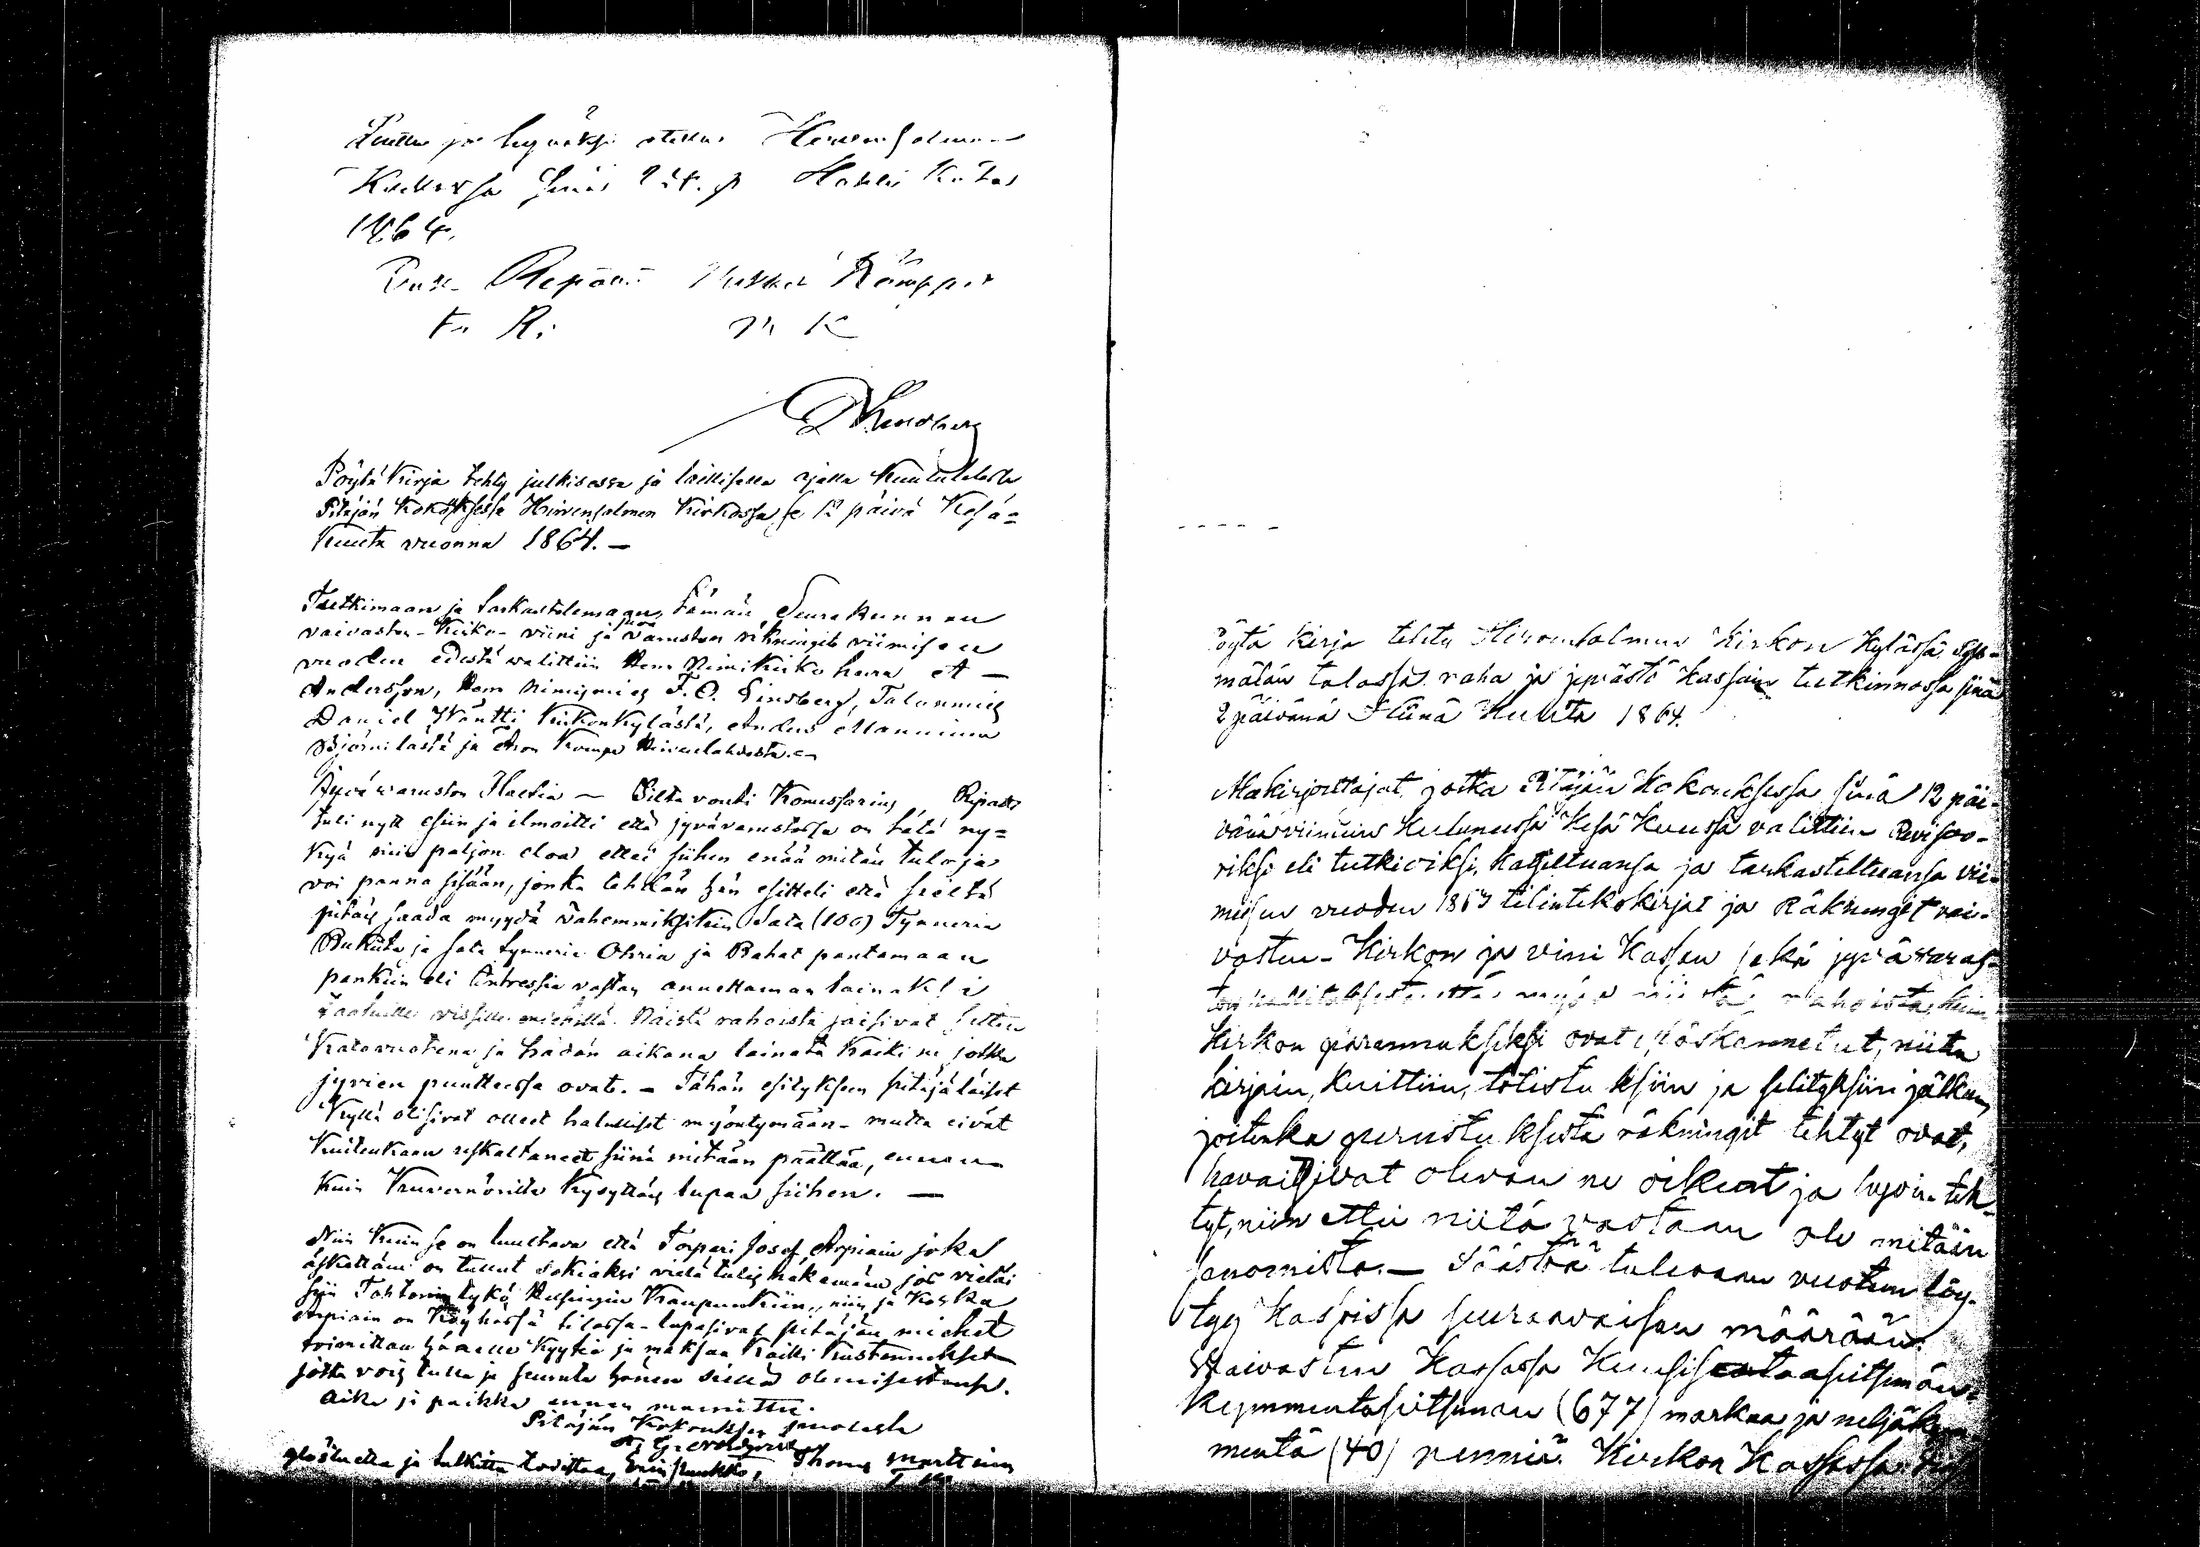 Luettu ja hyväksi otettu Hirvensalmen
Kirkossa sinä
1864.
Repään Kämppi
R. K
Pöytä Kirja tehty julkisessa ja laillisella ajalla Kuulutetussa
Pitäjän Kokouksessa Hirvensalmen Kirkossa se 12 päivä Kesä=
Kuuta vuonna 1864. —
Tutkimaan ja tarkastelemaan tämän Seurakunnan
vaivasten- Kirko- viini ja jyvä varuston räkningit viimisen
vuoden edestä walittiin Herra Nimikirko herra A —
Andersson, Herra Nimismies F. O. Lindberg, Talonmies
Daniel Wäntti Kirkonkylästä, Anders Manninen
ja Aron Kamp
Jyvä varuston Haltia — Silta vouti Komissarius Ripatti
tuli nytt esiin ja ilmoitti että jyvävarustossa on tätä ny=
kyä niin paljon eloa ettei siihen enää mitään tuloja
voi panna sisään, jonka tehdän hän esitteli että sieltä
pitäis saada myydä vähemmiksikin Sata (100) Tynneriä
Rukiita ja sata tynneriä Ohria ja Rahat pantamaan
pankiin eli Intressia vastan annettaman lainaksi
vissille miehille. Näistä rahoista jäisivät sitten
Katovuotena ja hädän aikana lainata Kaikki ne jotka
jyvien puutteessa ovat. — Tähän esityksen pitäjäläiset
Kyllä olisivat olleet halulliset myöntymään - mutta eivät
Kuitenkaan uskaltaneet siinä mitään päättää, ennen
Kuin Kuvernöriltä Kysyttäis lupaa siihen. —
Niin Kuin se on luultava että Torpari Josef Arpiain joka
äskettäin on tullut sokiaksi vielä tulis näkemään jos vietäi
siin Tohtorin tykö Helsingin Kaupunkiin, niin ja Koska
Arpiain on Köyhässä tilassa - lupasivat pitäjän miehet
toimittaa hänelle Kyytiä ja maksaa Kaikki Kustannukset
jotka vois tulla ja seurata hänen siellä olemisestansa.
Aika ja paikka ennen mainittu.
Pitäjän Kokouksen puolesta
ylösluettu ja julkittu todistaa, Thomas Marttinen
Pöytä kirja tehty Hirvensalmen Kirkon Kylässä Sep-
mälän talossa raha ja jyvästö Kassain tutkinnossa sinä
2 päivänä Heinä Kuuta 1864.
Allakirjottajat, jotka Pitäjän Kokouksessa sinä 12 päi-
vänä viimein Kuluneessa Kesä Kuussa valittiin Revisoo-
riksi eli tutkioiksi, katseltuansa ja tarkasteltuansa vii-
meisen vuoden 1863 tilintekokirjat ja Räkningit vai-
vasten- Kirkon ja viini Kassan sekä jyvävaras-
ton hallituksesta että myös niistä rahoista, kuin
Kirkon parannukseksi ovat ylöskannetut, niitten
kirjain, Kuittiin, totistuksiin ja selityksiin jälkeen,
joitenka perustuksesta räkningit tehtyt ovat,
havaitsivat olevan ne oikeat ja hyvin teh-
tyt, niin ettei niitä vastaan ole mitään
sanomista. — Säästöä tulevaan vuoteen löy-
tyy Kassoissa seuraavaisen määrään:
Vaivasten Kassassa Kuusisataaseitsemän-
kymmentäseitsemän (677) markkaa ja neljäkym
mentä (40) penniä. Kirkon Kassassa